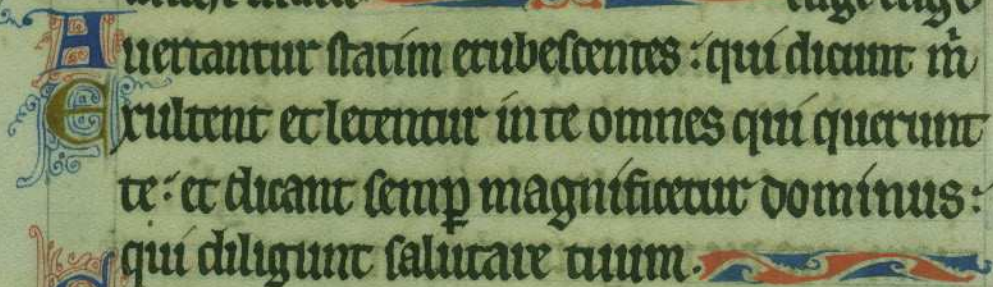 euge euge
Auertantur statim erubescentes : qui dicunt m̄
Exultent et letentur in te omnes qui querunt
te : et dicant semp̲ magnificetur dominus :
qui diligunt salutare tuum .